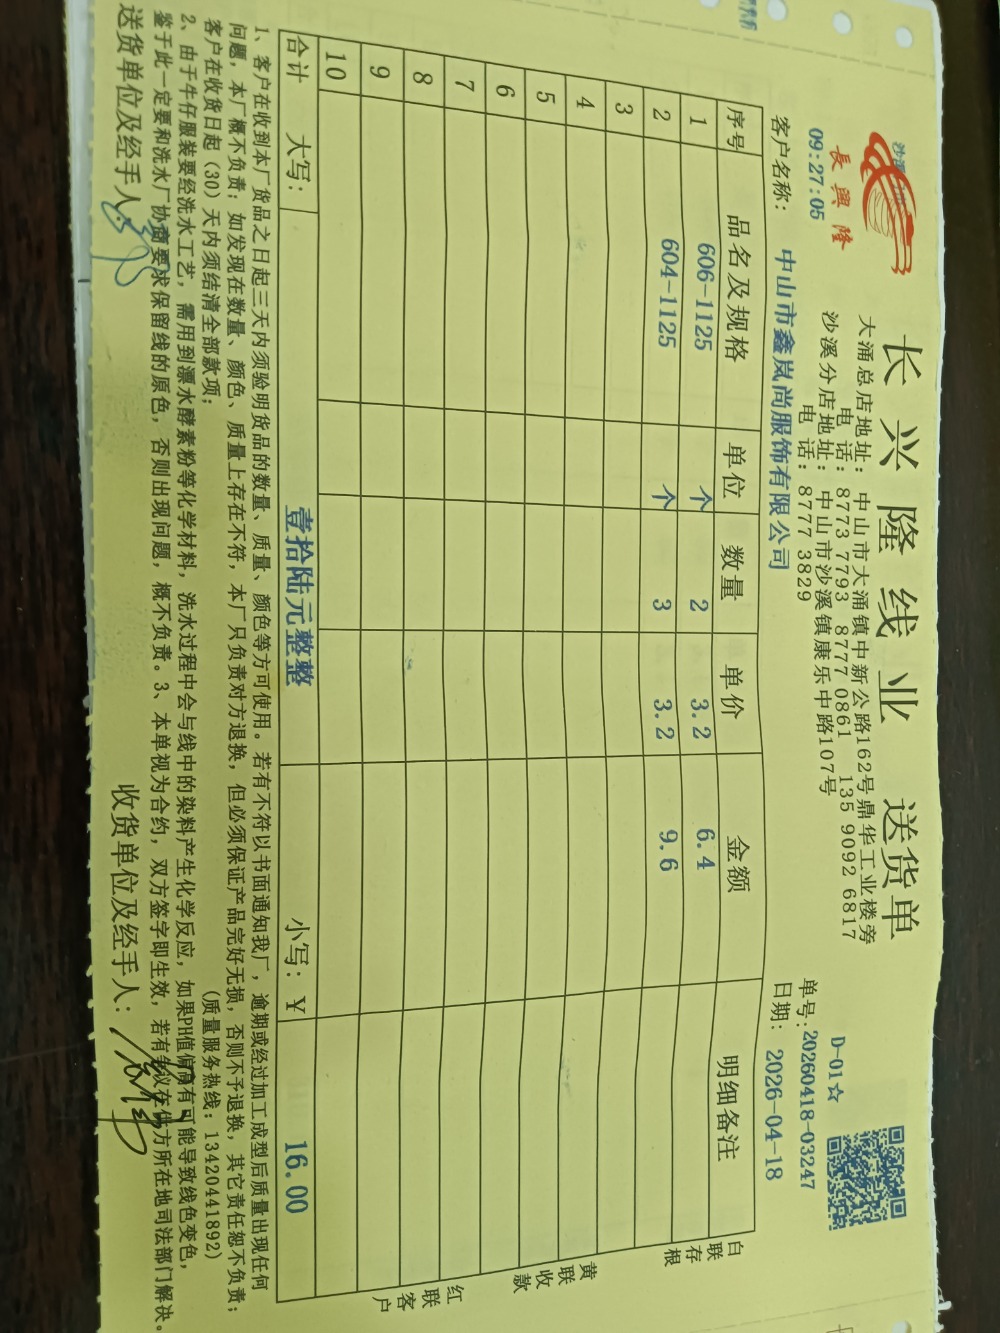 长兴隆线业 送货单
長興隆
大涌总店地址：中山市大涌镇中新公路162号鼎华工业楼旁
电 话：8773 7793 8777 0861 135 9092 6817
沙溪分店地址：中山市沙溪镇康乐中路107号
电 话：8777 3829
D-01☆
09:27:05
单号：20260418-03247
客户名称：中山市鑫岚尚服饰有限公司
日期：2026-04-18
序号 品名及规格 单位 数量 单价 金额 明细备注
1 606-1125 个 2 3.2 6.4
2 604-1125 个 3 3.2 9.6
3
4
5
6
7
8
9
10
合计 大写：壹拾陆元整整 小写：￥ 16.00
白联存根
黄联收款
红联客户
1、客户在收到本厂货品之日起三天内须验明货品的数量、质量、颜色等方可使用。若有不符以书面通知我厂，逾期或经过加工成型后质量出现任何
问题，本厂概不负责；如发现在数量、颜色、质量上存在不符，本厂只负责对方退换，但必须保证产品完好无损，否则不予退换，其它责任恕不负责；
客户在收货日起（30）天内须结清全部款项；
（质量服务热线：13420441892）
2、由于牛仔服装要经洗水工艺，需用到漂水酵素粉等化学材料，洗水过程中会与线中的染料产生化学反应，如果PH值偏高有可能导致线色变色，
鉴于此一定要和洗水厂协商要求保留线的原色，否则出现问题，概不负责。3、本单视为合约，双方签字即生效，若有争议在供方所在地司法部门解决。
送货单位及经手人：
收货单位及经手人：